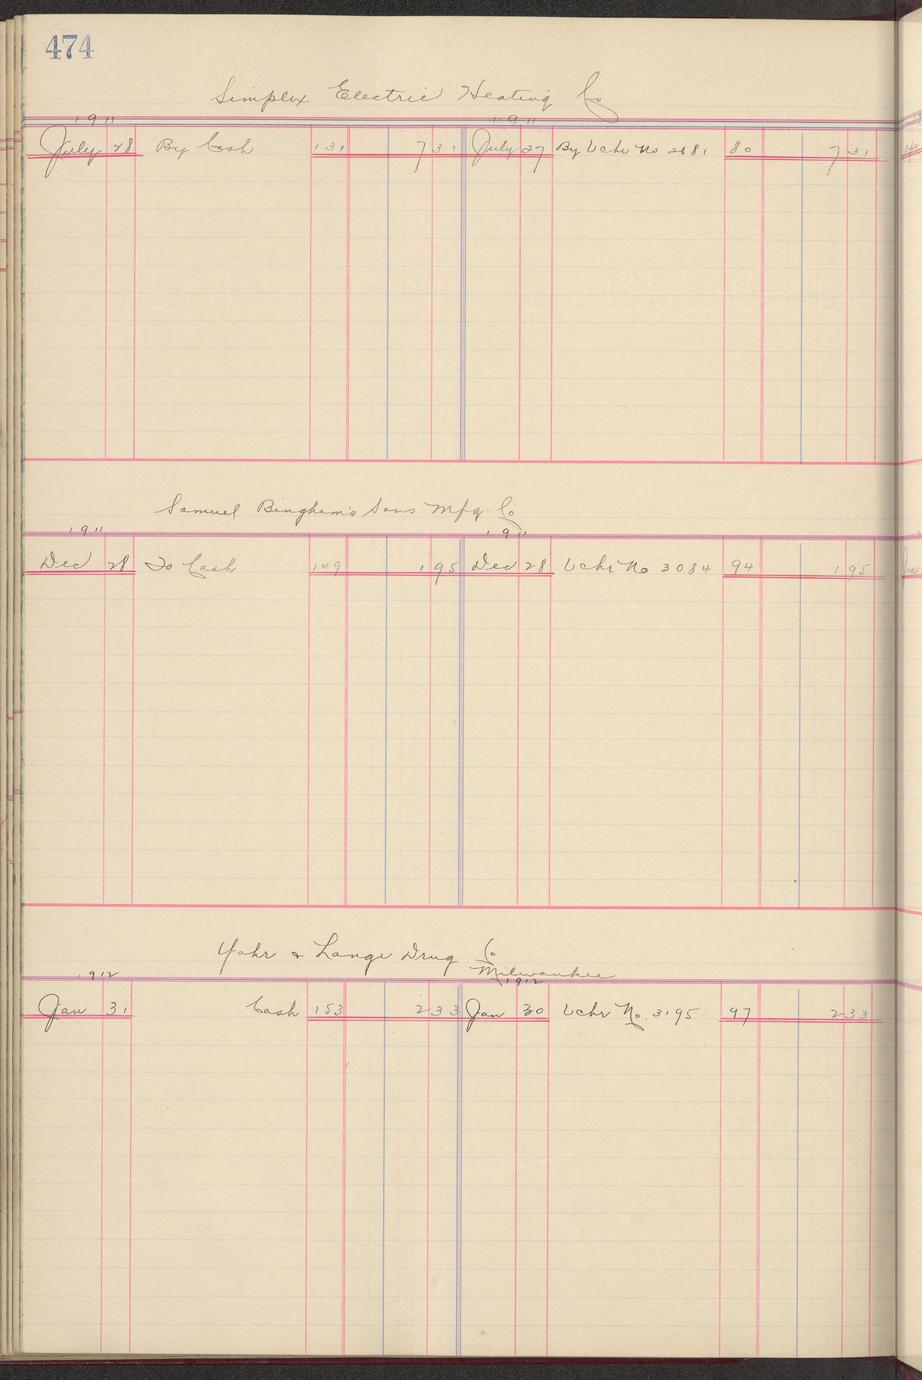 474
Simplex Electric Heating Co
1911 1911
July 28 By Cash 131 7 31 July 27 By Vchr No 2681 80 7 31
Samuel Bingham's Sons Mfg Co
1911 1911
Dec 28 To Cash 149 1 95 Dec 28 Vchr No 3084 94 1 95
Yahr & Lange Drug Co
Milwaukee
1912 1912
Jan 31 Cash 153 2 33 Jan 30 Vchr No. 3195 97 2 33